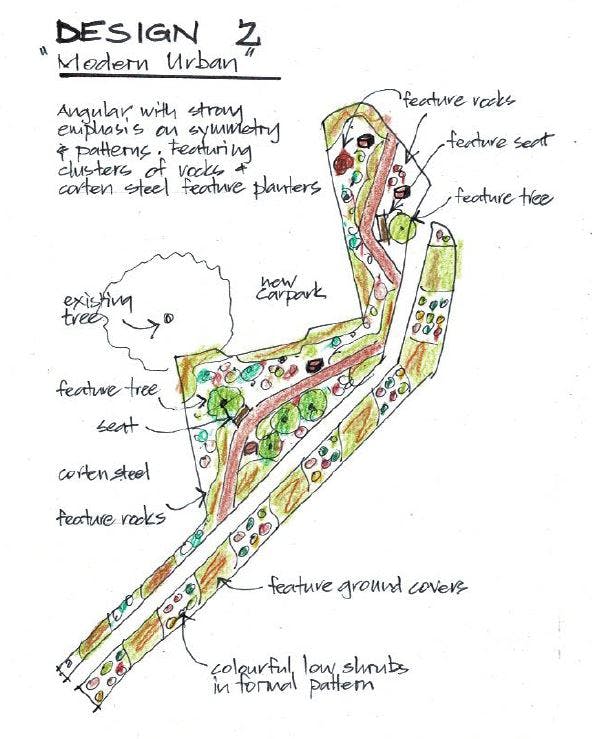 DESIGN 2
"Modern Urban"
Angular with strong
emphasis on symmetry
& patterns. Featuring
clusters of rocks &
corten steel feature planters
feature rocks
feature seat
feature tree
new
carpark
existing
tree
feature tree
seat
corten steel
feature rocks
feature ground covers
colourful, low shrubs
in formal pattern